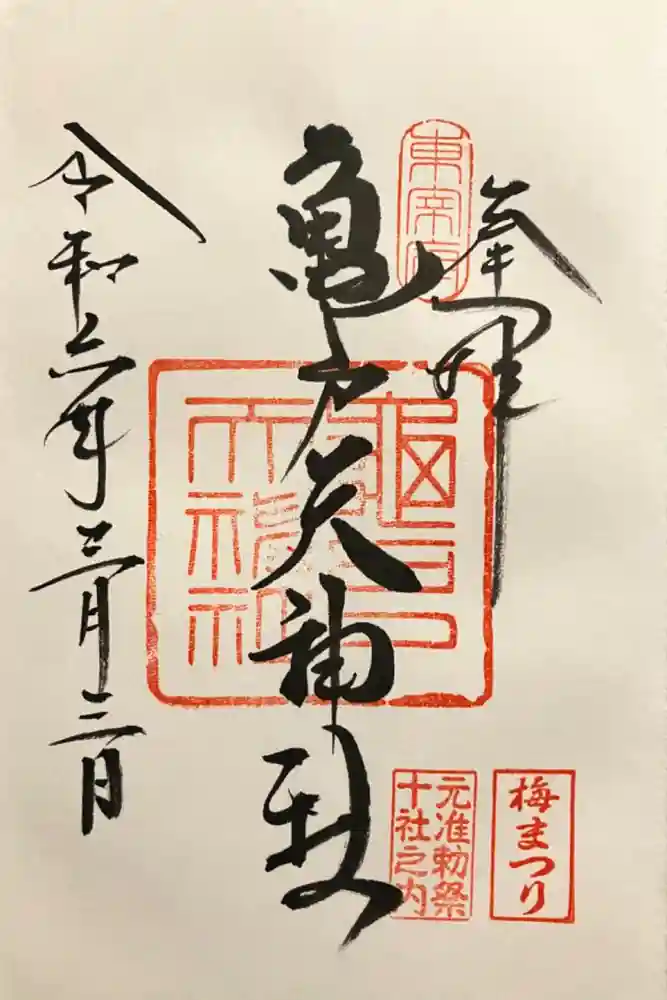 奉拝
東宰府
亀戸天神社
龜戸
天神社
令和六年三月三日
梅まつり
元准勅祭
十社之内